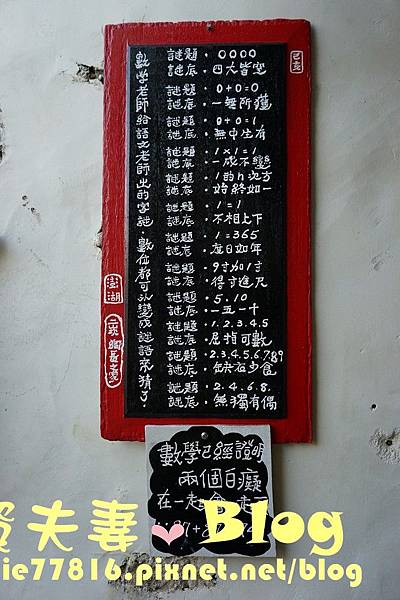 數學老師給語文老師出的字謎．數位都可以變成謎語來猜了．
謎題．0000
謎底．四大皆空
謎題．0+0=0
謎底．一無所獲
謎題．0+0=1
謎底．無中生有
謎題．1×1=1
謎底．一成不變
謎題．1的n次方
謎底．始終如一
謎題．1=1
謎底．不相上下
謎題．1=365
謎底．度日如年
謎題．9寸加1寸
謎底．得寸進尺
謎題．5.10
謎底．一五一十
謎題．1.2.3.4.5
謎底．屈指可數
謎題．2.3.4.5.6.7.8.9
謎底．缺衣少食
謎題．2.4.6.8.
謎底．無獨有偶
澎湖
二崁
數學已經證明
兩個白癡
在一起
夫妻 Blog
ie77816.pixnet.net/blog